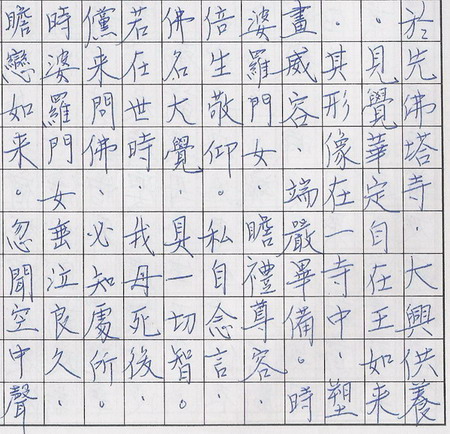 於先佛塔寺、大興供養
、見覺華定自在王如来
、其形像在一寺中、塑
畫威容、端嚴畢備。時
婆羅門女、瞻禮尊容、
倍生敬仰。私自念言、
佛名大覺。具一切智。
若在世時、我母死後、
儻来問佛、必知處所。
時婆羅門女垂泣良久、
瞻戀如来。忽聞空中聲